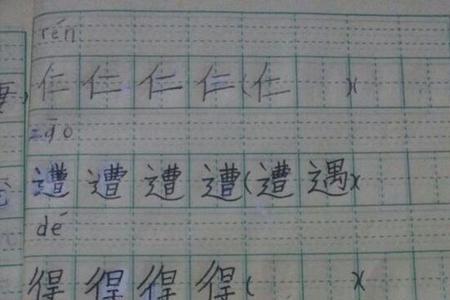 rén
仁 仁 仁 仁(仁 )(
zāo
遭 遭 遭 遭(遭 遇)(
dé
得 得 得 得( )(